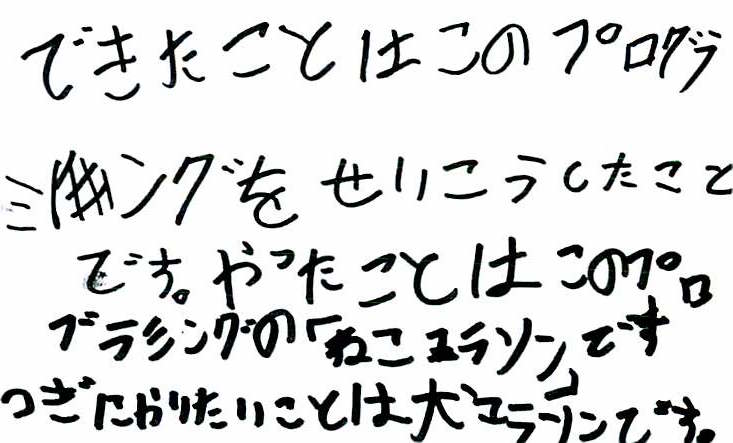 できたことはこのプログラ
ミングをせいこうしたこと
です。やったことはこのプロ
グラミングの「ねこマラソン」です
つぎにやりたいことは犬マラソンです。